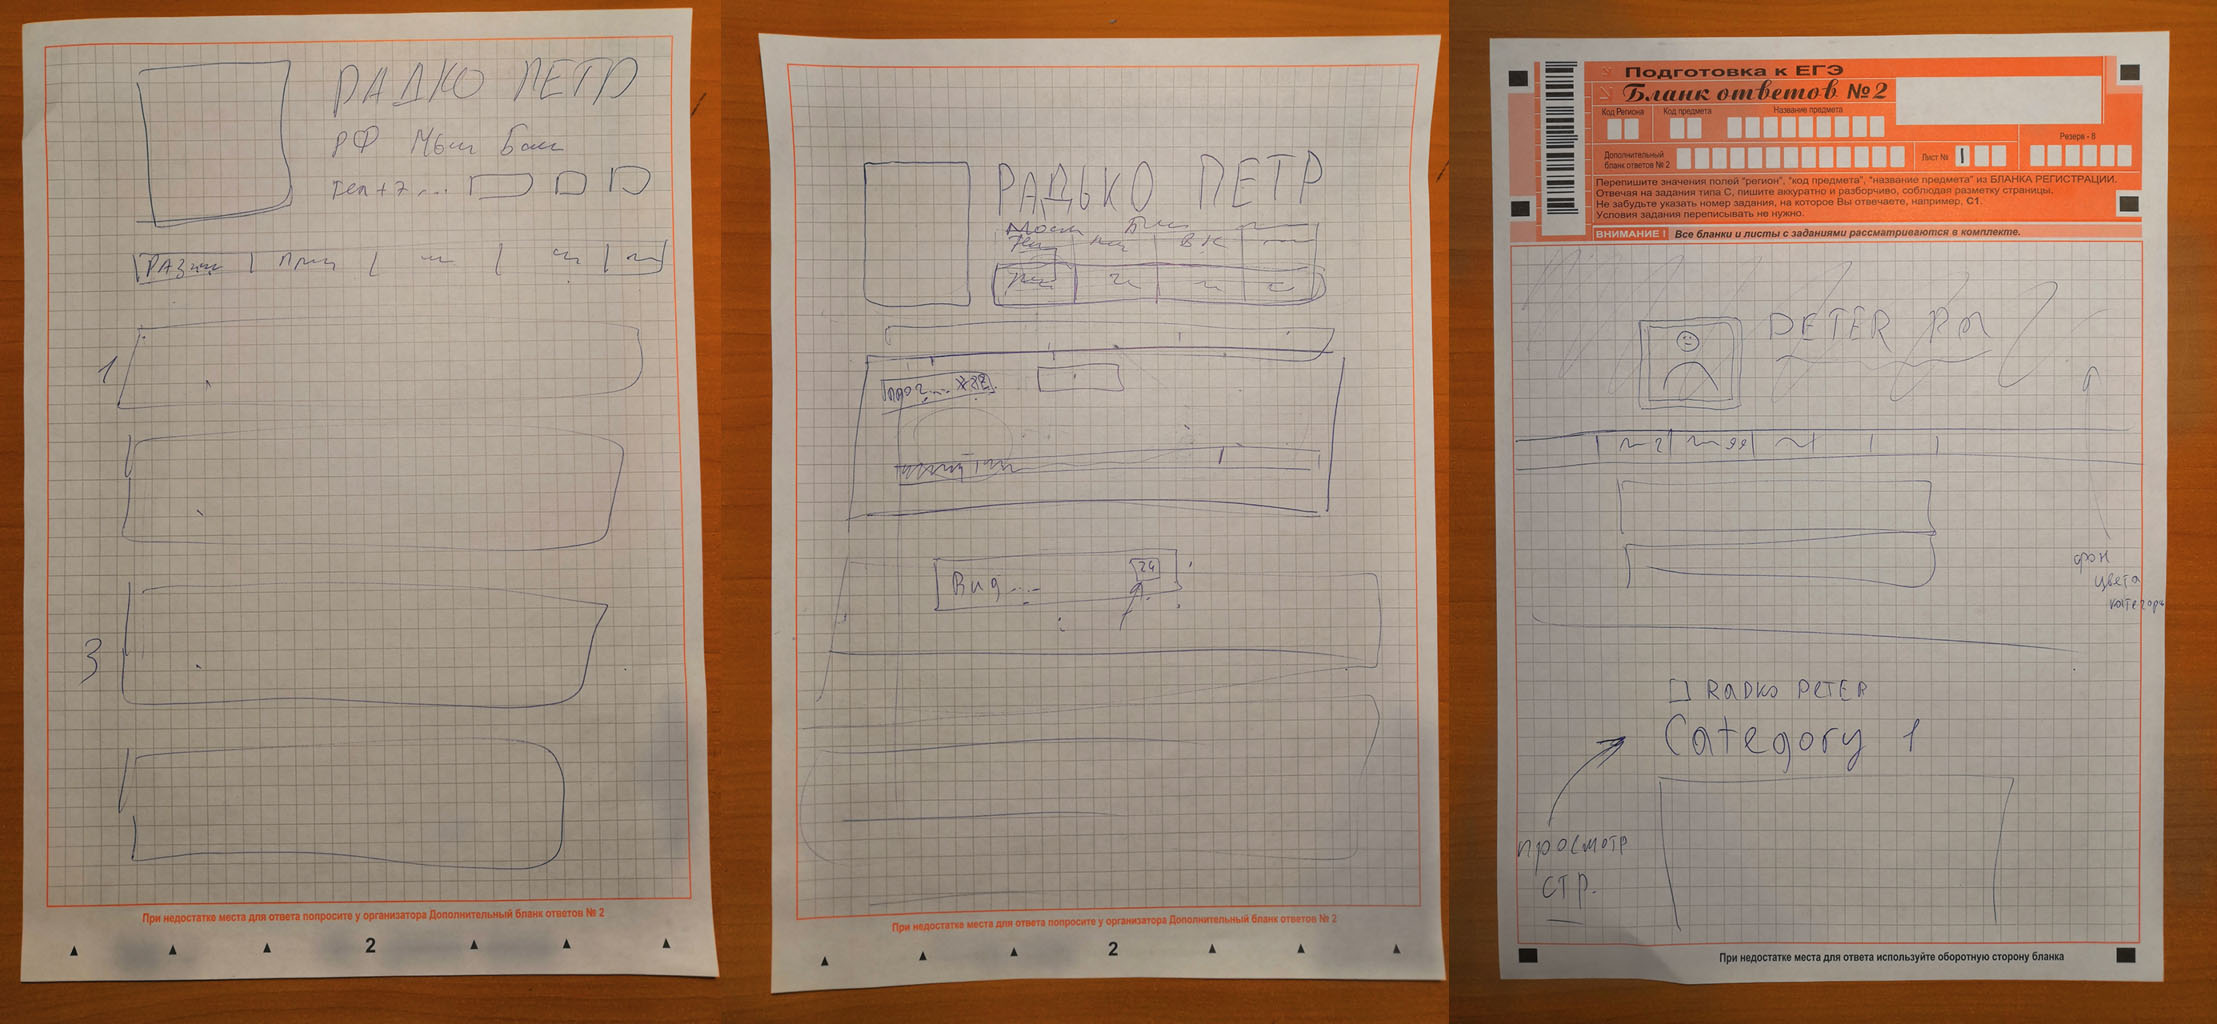 РАДКО ПЕТР
РФ
тел +7...
1
3
При недостатке места для ответа попросите у организатора Дополнительный бланк ответов № 2
2
РАДЬКО ПЕТР
ВК
Вид....
24
При недостатке места для ответа попросите у организатора Дополнительный бланк ответов № 2
2
Подготовка к ЕГЭ
Бланк ответов №2
Код Региона
Код предмета
Название предмета
Резерв - 8
Дополнительный
бланк ответов № 2
Лист №
1
Перепишите значения полей "регион", "код предмета", "название предмета" из БЛАНКА РЕГИСТРАЦИИ.
Отвечая на задания типа С, пишите аккуратно и разборчиво, соблюдая разметку страницы.
Не забудьте указать номер задания, на которое Вы отвечаете, например, С1.
Условия задания переписывать не нужно.
ВНИМАНИЕ ! Все бланки и листы с заданиями рассматриваются в комплекте.
PETER
фон
цвета
категори
RADKO PETER
Category 1
просмотр
стр.
При недостатке места для ответа используйте оборотную сторону бланка